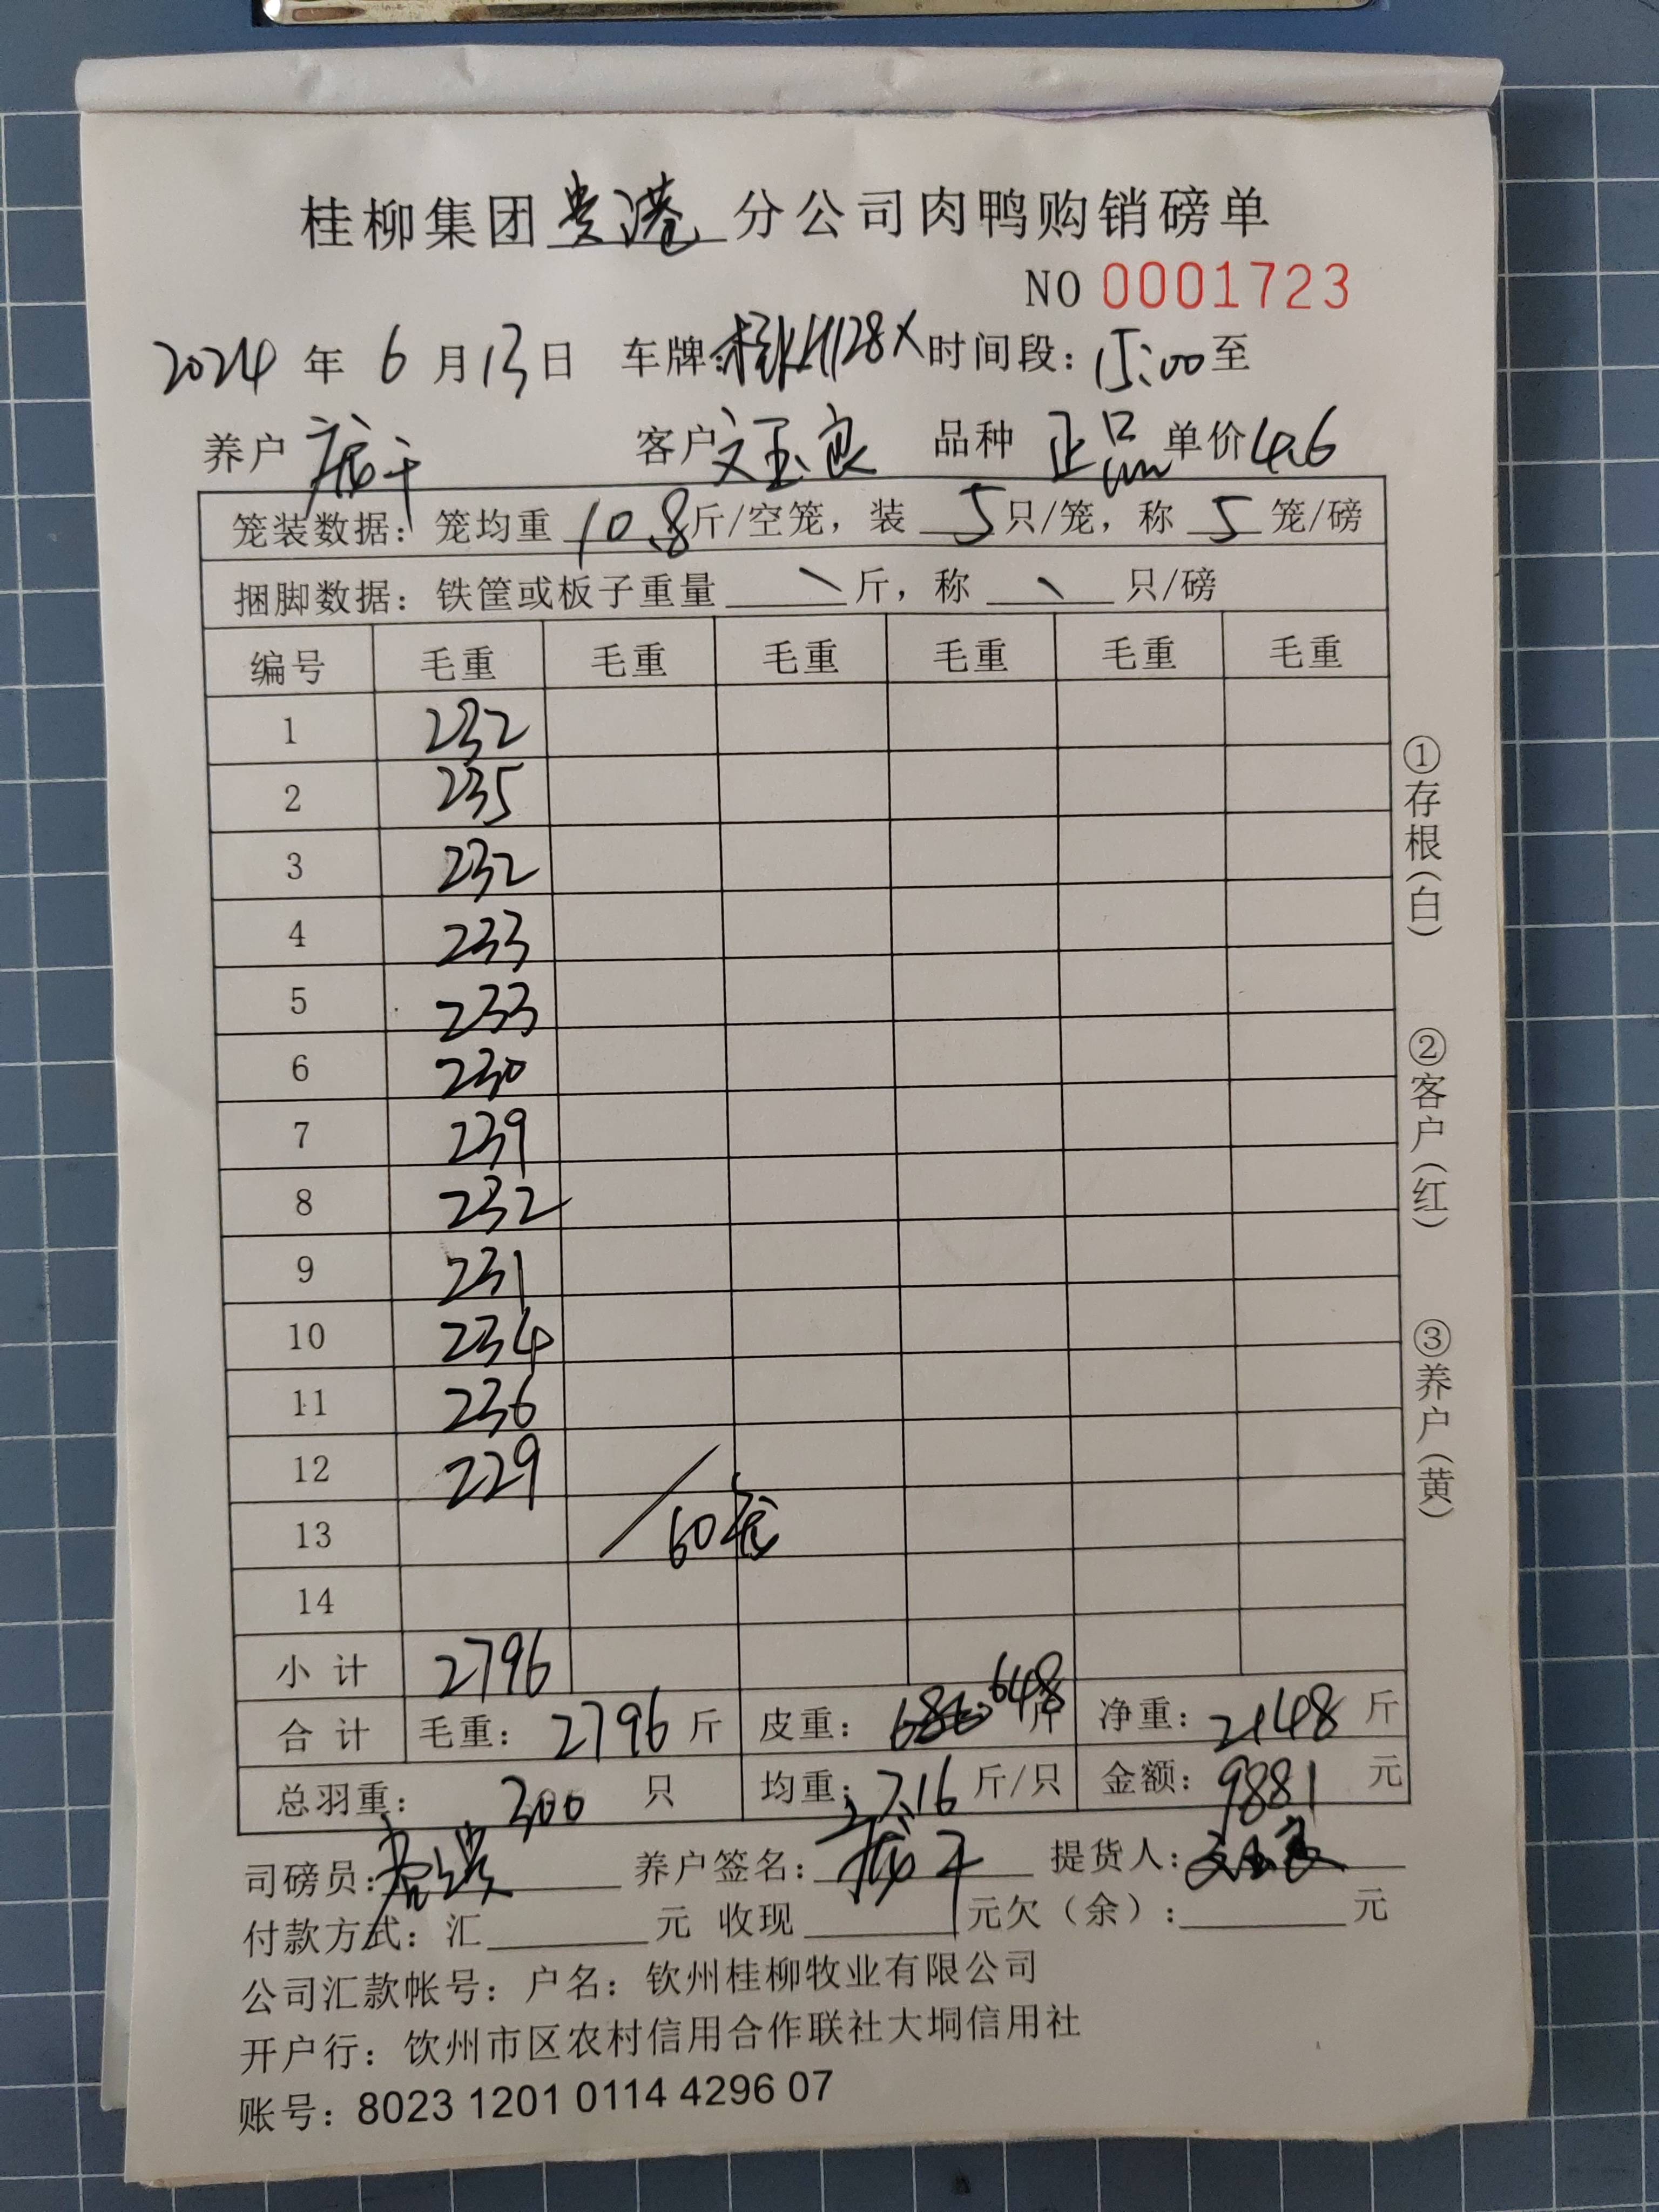 桂柳集团贵港分公司肉鸭购销磅单
NO 0001723
2024年6月13日 车牌:桂 H128X 时间段:15:00至
养户 客户文玉良 品种 正品 单价4.6
笼装数据:笼均重 10.8斤/空笼,装 5只/笼,称 5 笼/磅
捆脚数据:铁筐或板子重量 \ 斤,称 \ 只/磅
编号 毛重 毛重 毛重 毛重 毛重 毛重
1 232
2 235
3 232
4 233
5 233
6 230
7 239
8 232
9 231
10 234
11 236
12 229
13 / 60笼
14
小计 2796
合计 毛重:2796 斤 皮重:648斤 净重:2148 斤
总羽重:300 只 均重:7.16 斤/只 金额:9881 元
司磅员: 养户签名: 提货人:文玉良
付款方式:汇 元 收现 元欠(余): 元
公司汇款帐号:户名:钦州桂柳牧业有限公司
开户行:钦州市区农村信用合作联社大垌信用社
账号:8023 1201 0114 4296 07
①存根(白)
②客户(红)
③养户(黄)